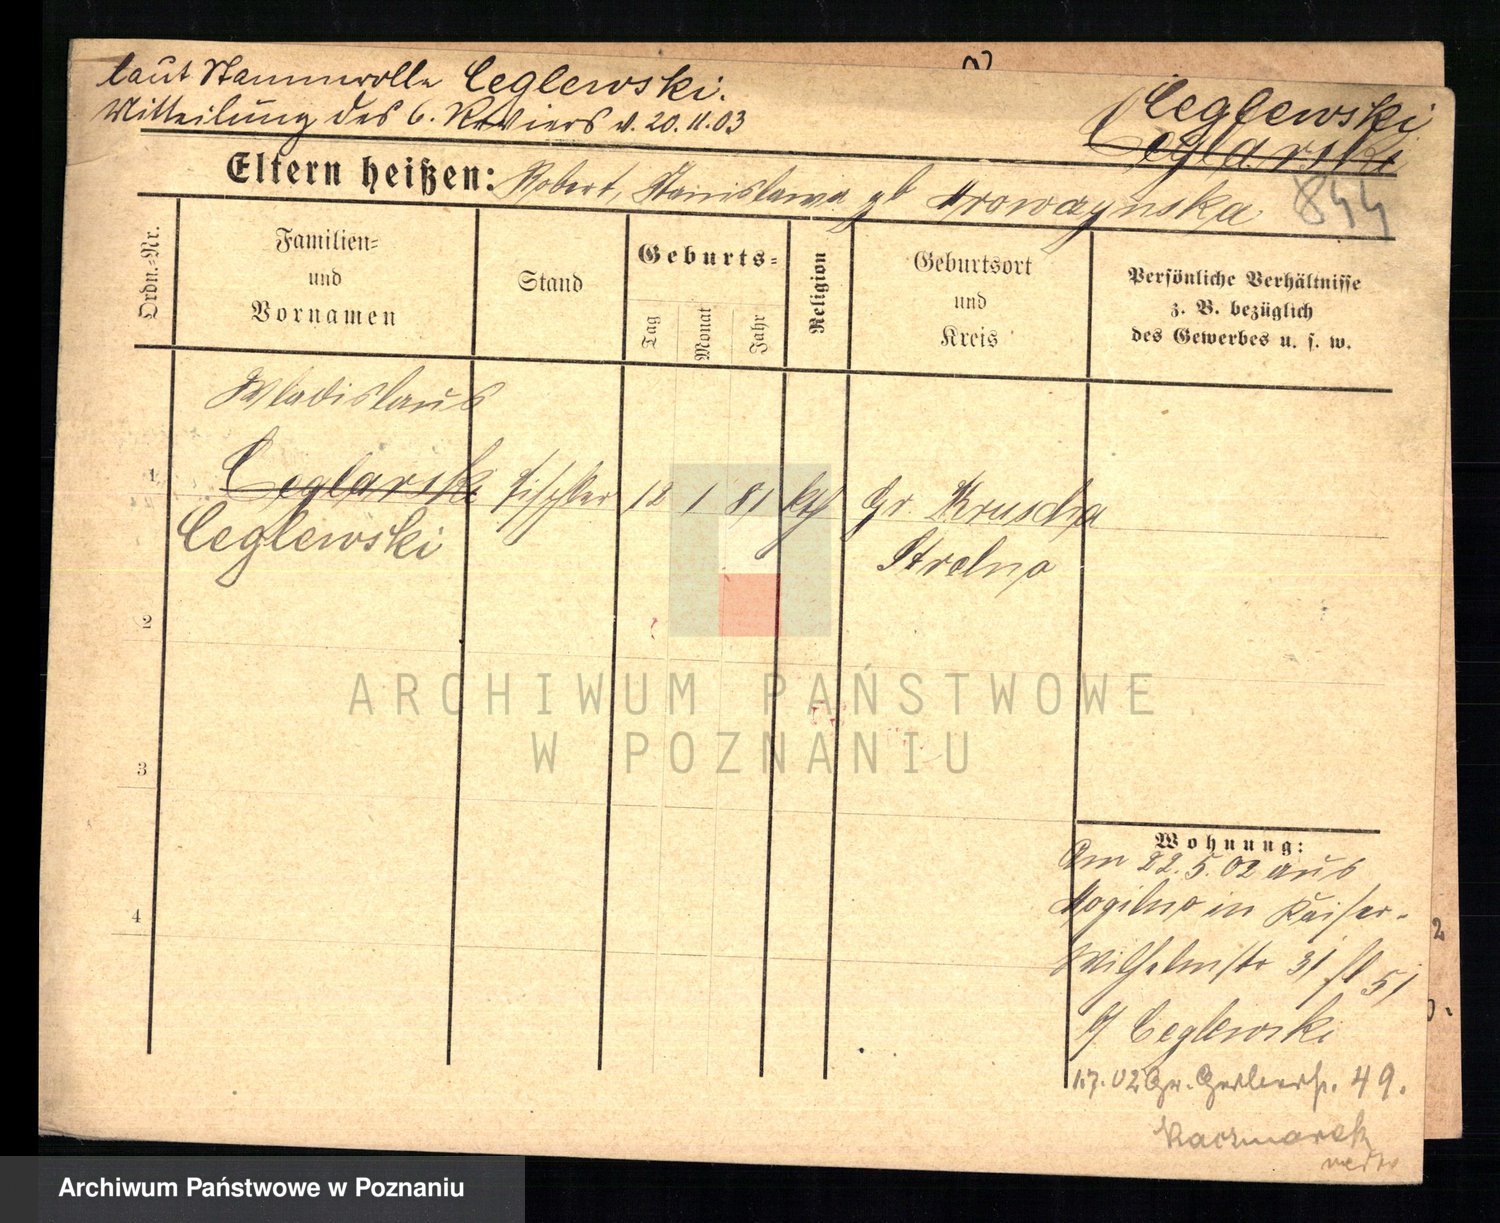 laut Stammrolle Ceglewski.
Mitteilung des 6. Reviers v. 20.11.03
Ceglewski
Ceglarski
844
Eltern heißen: Robert, Stanislawa gb
Ordn.-Nr.
Familien-
und
Vornamen
Stand
Geburts-
Tag
Monat
Jahr
Religion
Geburtsort
und
Kreis
Persönliche Verhältnisse
z. B. bezüglich
des Gewerbes u. s. w.
Wladislaus
1 Ceglarski Tischler 12 1 81 kth Gr. Kruscha
Ceglewski Strelno
2
3
4
Wohnung:
Am 22.5.02 aus
Mogilno in Kaiser-
Wilhelmstr 31 51
b/ Ceglewski
1.7.02 Gr. Gerberstr. 49.
Kaczmarek
ARCHIWUM PAŃSTWOWE
W POZNANIU
Archiwum Państwowe w Poznaniu